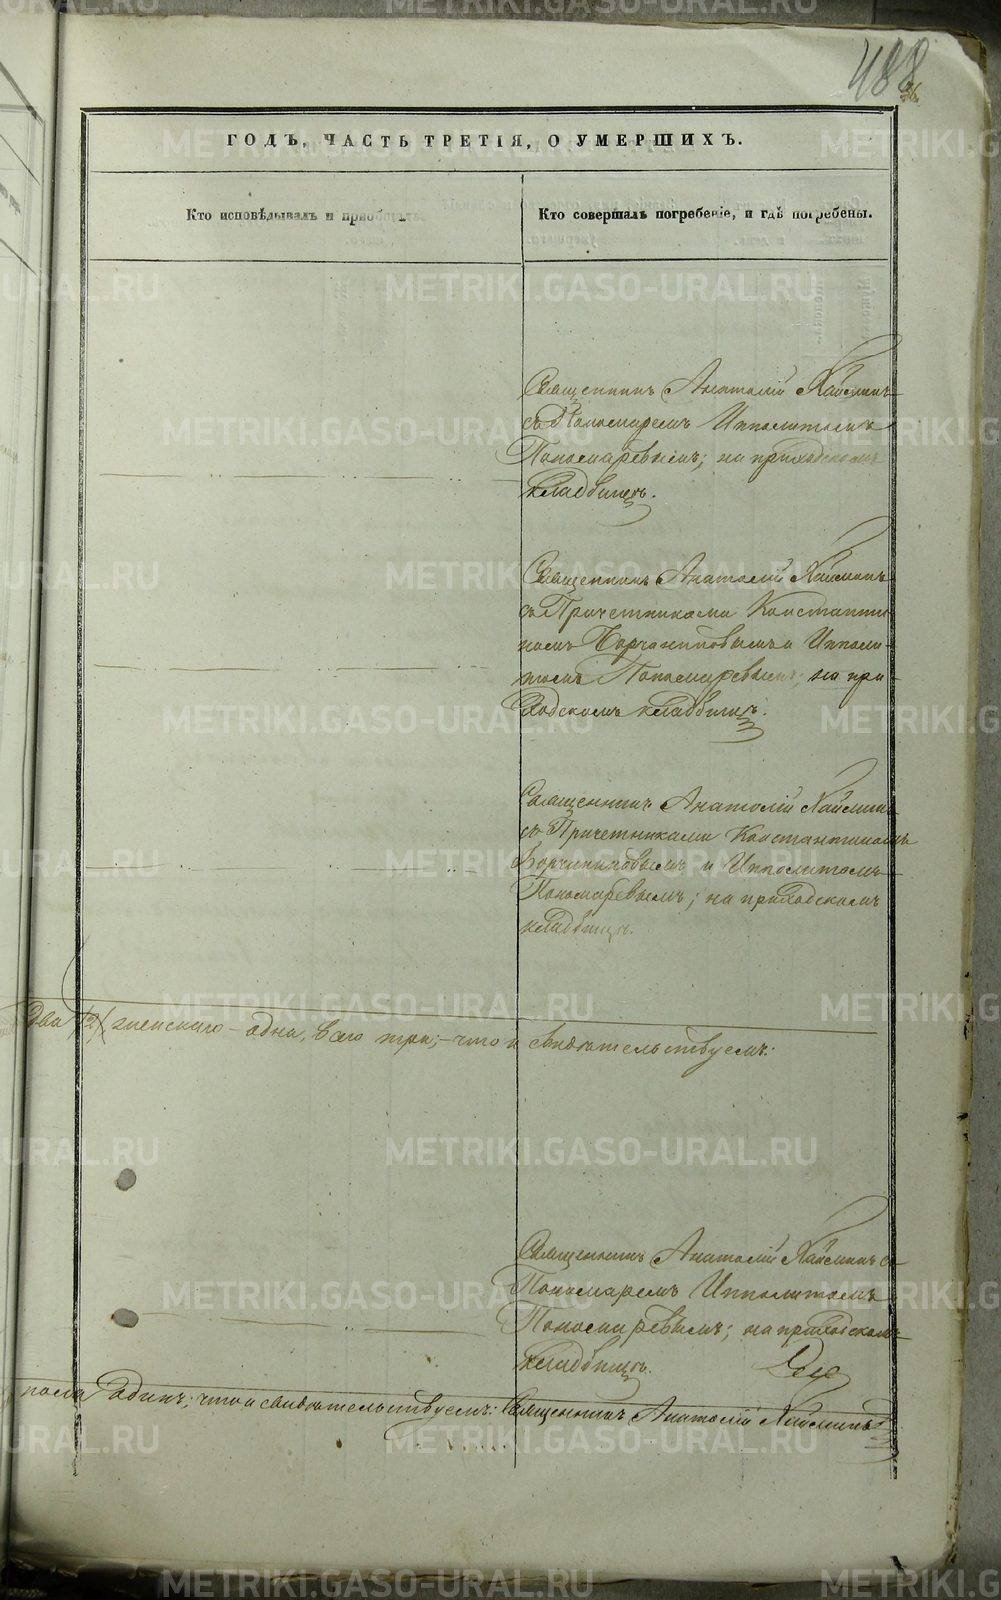 488
ГОДЪ, ЧАСТЬ ТРЕТІЯ, О УМЕРШИХЪ.
Кто исповѣдывалъ и приобщ
Кто совершалъ погребеніе, и гдѣ погребены.
Священникъ Анатолій Хаймин
съ Пономаремъ Ипполитомъ
Пономаревымъ; на приходскомъ
кладбищѣ.
Священникъ Анатолій Хайминъ
съ Причетниками Константи
номъ и Иппoли
томъ Пономаревымъ; на при
ходскомъ кладбищѣ.
Священникъ Анатолій Хайминъ
съ Причетниками Константиномъ
и Ипполитомъ
Пономаревымъ; на приходскомъ
кладбищѣ.
два /2/ женскаго – одна, всего три; – что и свидѣтельствуемъ:
Священникъ Анатолій Хайминъ съ
Пономаремъ Ипполитомъ
Пономаревымъ; на приходскомъ
кладбищѣ.
пола одинъ; что и свидѣтельствуемъ: Священникъ Анатолій Хайминъ
METRIKI.GASO-URAL.RU